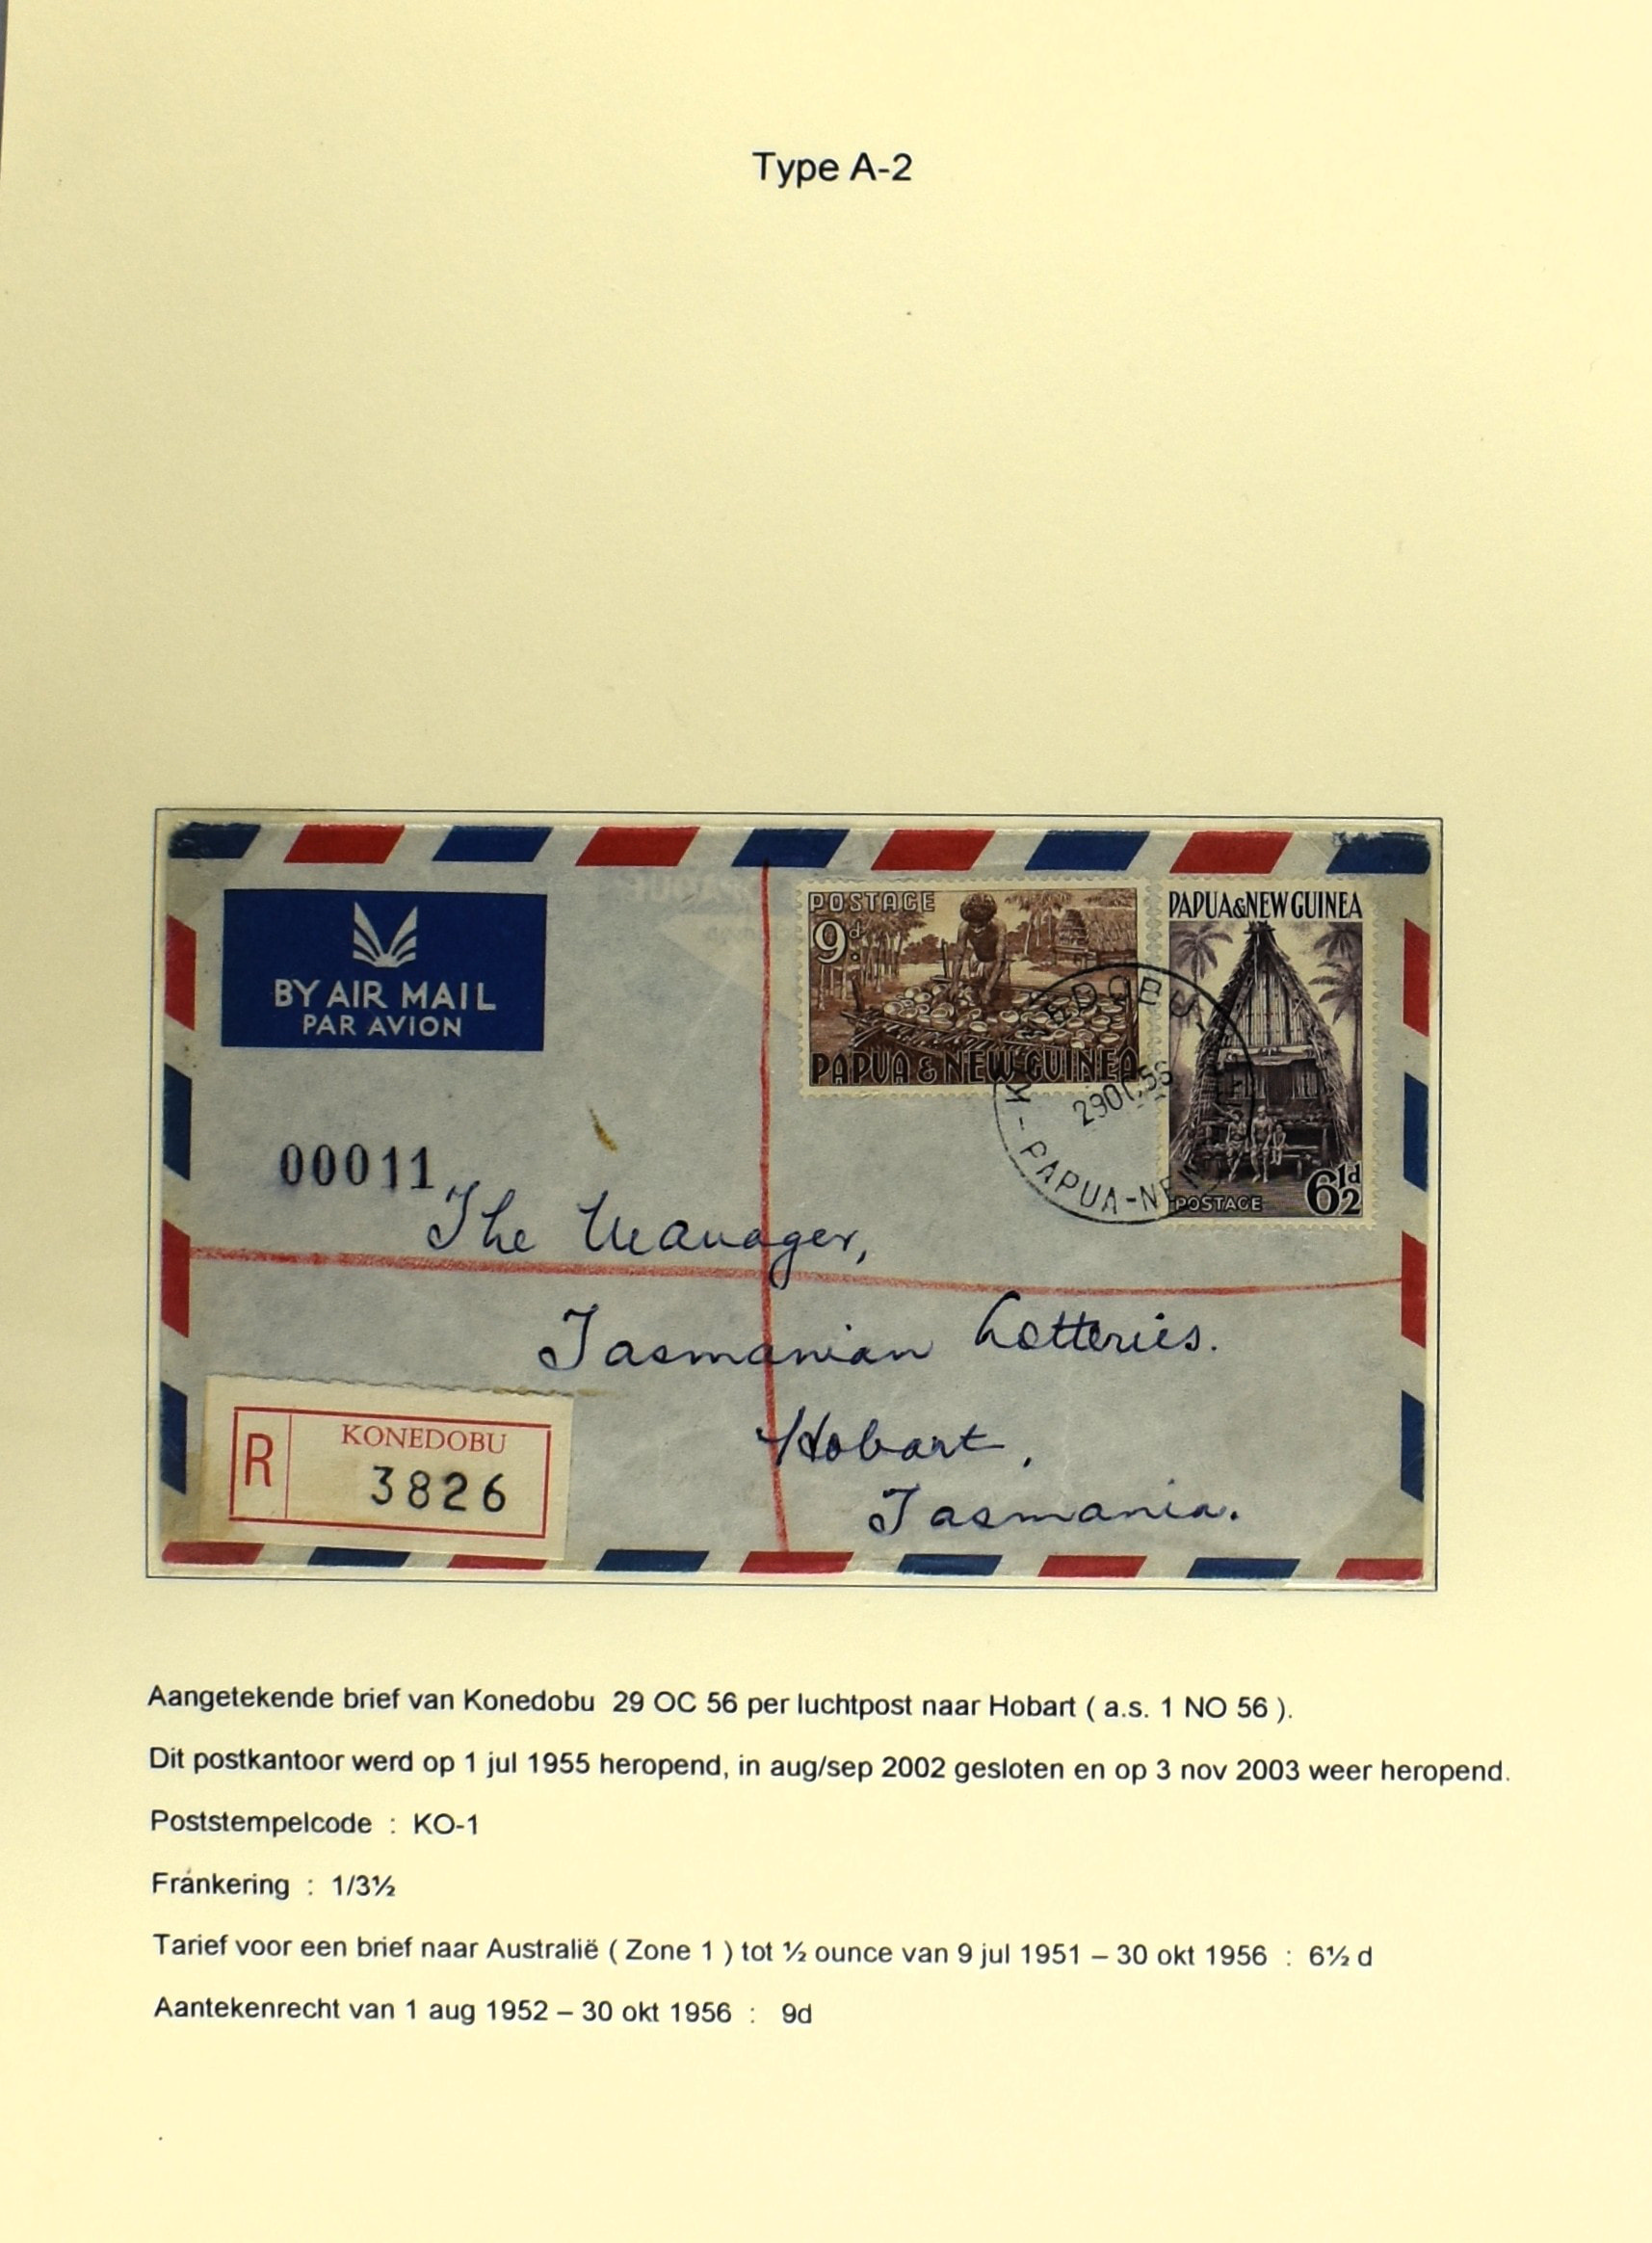 Type A-2
BY AIR MAIL
PAR AVION
POSTAGE
9d.
PAPUA & NEW GUINEA
PAPUA & NEW GUINEA
POSTAGE
6½d
KONEDOBU
29 OC 56
PAPUA-NEW
00011
The Manager,
Tasmanian Lotteries.
Hobart,
Tasmania.
R
KONEDOBU
3826
Aangetekende brief van Konedobu 29 OC 56 per luchtpost naar Hobart ( a.s. 1 NO 56 ).
Dit postkantoor werd op 1 jul 1955 heropend, in aug/sep 2002 gesloten en op 3 nov 2003 weer heropend.
Poststempelcode : KO-1
Frankering : 1/3½
Tarief voor een brief naar Australië ( Zone 1 ) tot ½ ounce van 9 jul 1951 – 30 okt 1956 : 6½ d
Aantekenrecht van 1 aug 1952 – 30 okt 1956 : 9d